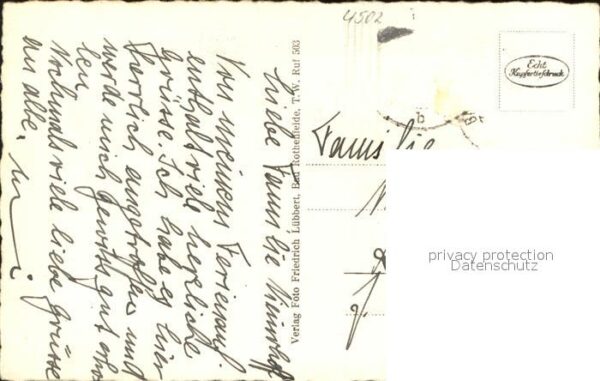 4502
Echt
Kupfertiefdruck
b
Familie
Verlag Foto Friedrich Lübbert, Bad Rothenfelde, T.W. Ruf 503
Liebe Familie
Von meinem Ferienauf
enthalt viel herzliche
Grüsse. Ich habe es hier
herrlich angetroffen und
werde mich gewiss gut erho
len.
Nochmals viele liebe Grüsse
an alle.
privacy protection
Datenschutz